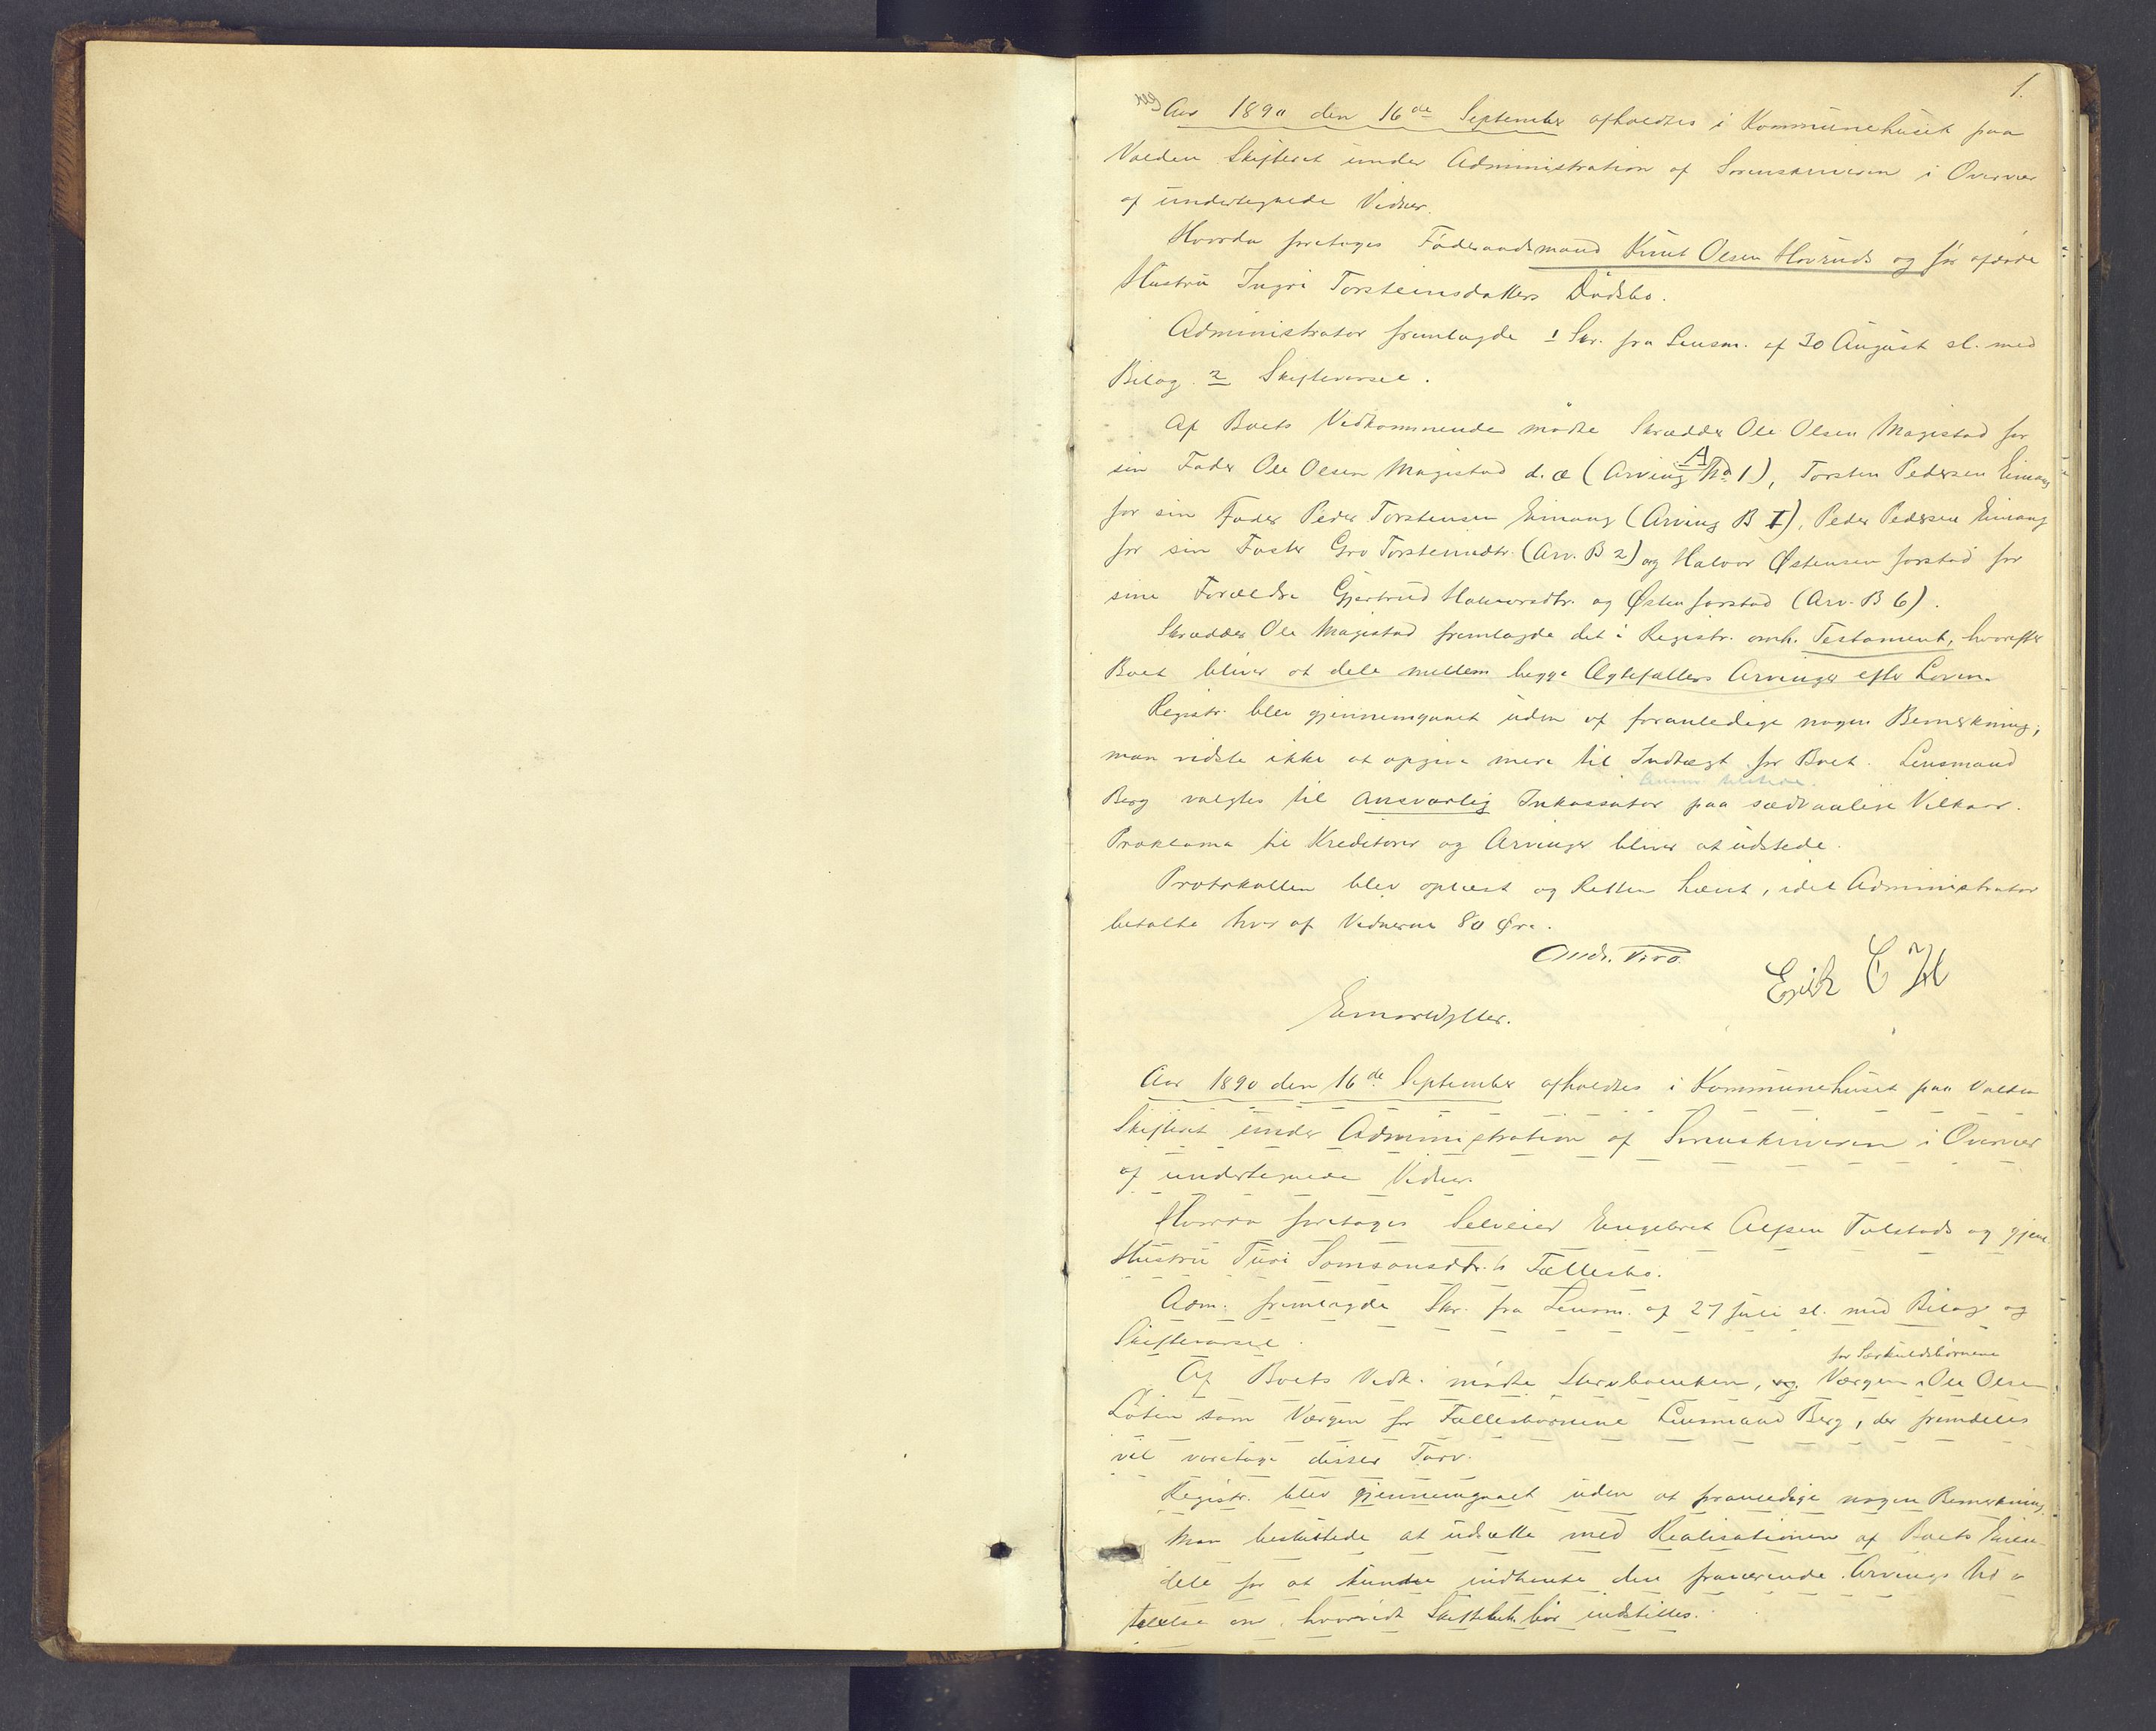 1.
Aar 1890 den 16de September afholdtes i Kommunehuset paa
Volden Skifteret under Administration af Sorenskriveren i Overvær
af undertegnede Vidner.
Hvorda foretoges Føderaadsmand Knut Olsen Hovruds og før afdøde
Hustru Ingri Torsteinsdatters Dødsbo.
Administrator fremlagde 1 Skr. fra Lensm. af 30 August sl. med
Bilag. 2 Skiftevarsel.
Af Boets Vedkommende mødte Skrædder Ole Olsen Magistad for
sin Fader Ole Olsen Magistad d. æ (Arving A No 1), Torsten Pedersen Einang
for sin Fader Peder Torstensen Einang (Arving B I), Peder Pedersen Einang
for sin Faster Gro Torsteinsdtr. (Arv. B 2) og Halvor Østensen Jorstad for
sine Forældre Gjertrud Halvorsdtr. og Østen Jorstad (Arv. B 6).
Skrædder Ole Magistad fremlagde det i Registr. omh. Testament, hvorefter
Boet bliver at dele mellem begge Ægtefællers Arvinger efter Loven.
Registr. blev gjennemgaaet uden at foranledige nogen Bemerkning;
man vidste ikke at opgive mere til Indtægt for Boet. Lensmand
Berg valgtes til ansvarlig Inkassator paa sædvanlige Vilkaar.
Proklama til Kreditorer og Arvinger bliver at udstede.
Protokollen blev oplæst og Retten hævet, idet Administrator
betalte hver af Vidnerne 80 Øre.
Erik E H
Aar 1890 den 16de September afholdtes i Kommunehuset paa Volden
Skifteret under Administration af Sorenskriveren i Overvær
af undertegnede Vidner.
Hvorda foretoges Selveier Engebret Alfsen Tolstads og gjenl.
Hustru Turi Samsonsdtr.s Fællesbo.
Adm. fremlagde Skr. fra Lensm. af 27 Juli sl. med Bilag og
Skiftevarsel.
for Særkuldsbørnene
Af Boets Vedk. mødte Stervboenken, og Værgen Ole Olsen
Løken som Værgen for Fællesbørnene Lensmand Berg, der fremdeles
vil varetage disses Tarv.
Registr. blev gjennemgaaet uden at foranledige nogen Bemerkning.
Man besluttede at udsætte med Realisationen af Boets Eien-
dele for at kunde indhente den fraværende Arvings Ud-
talelse om, hvorvidt Skiftebeh. bør indstilles.